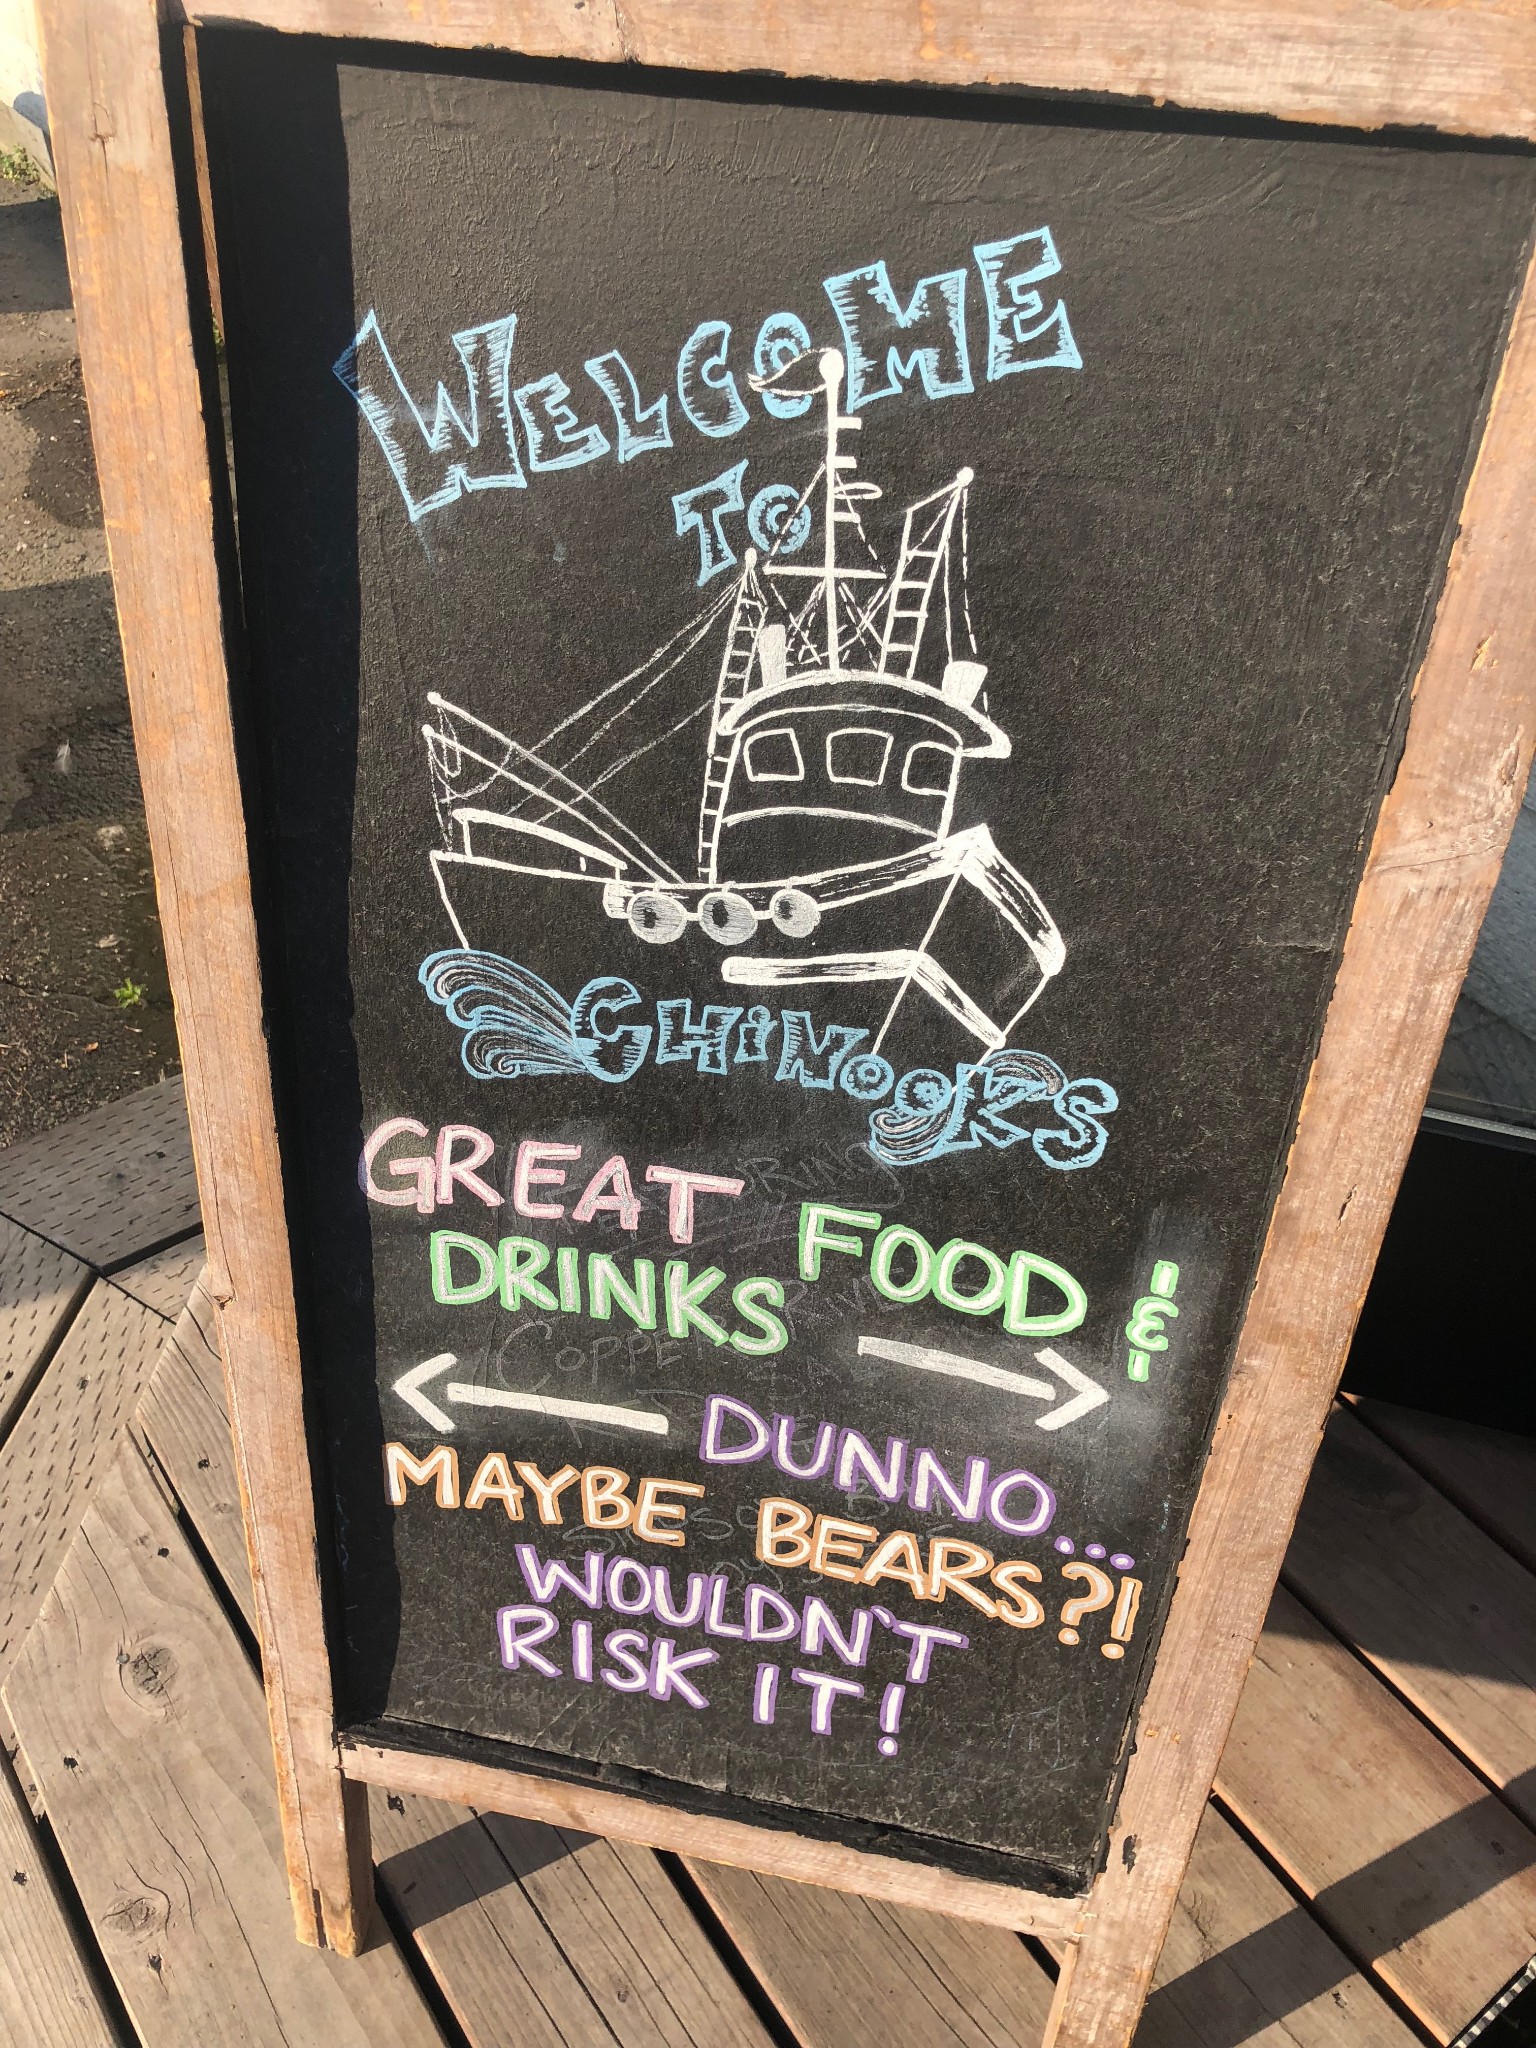 WELCOME
TO
CHiNOOK'S
GREAT FOOD &
DRINKS
DUNNO...
MAYBE BEARS?!
WOULDN'T
RISK IT!